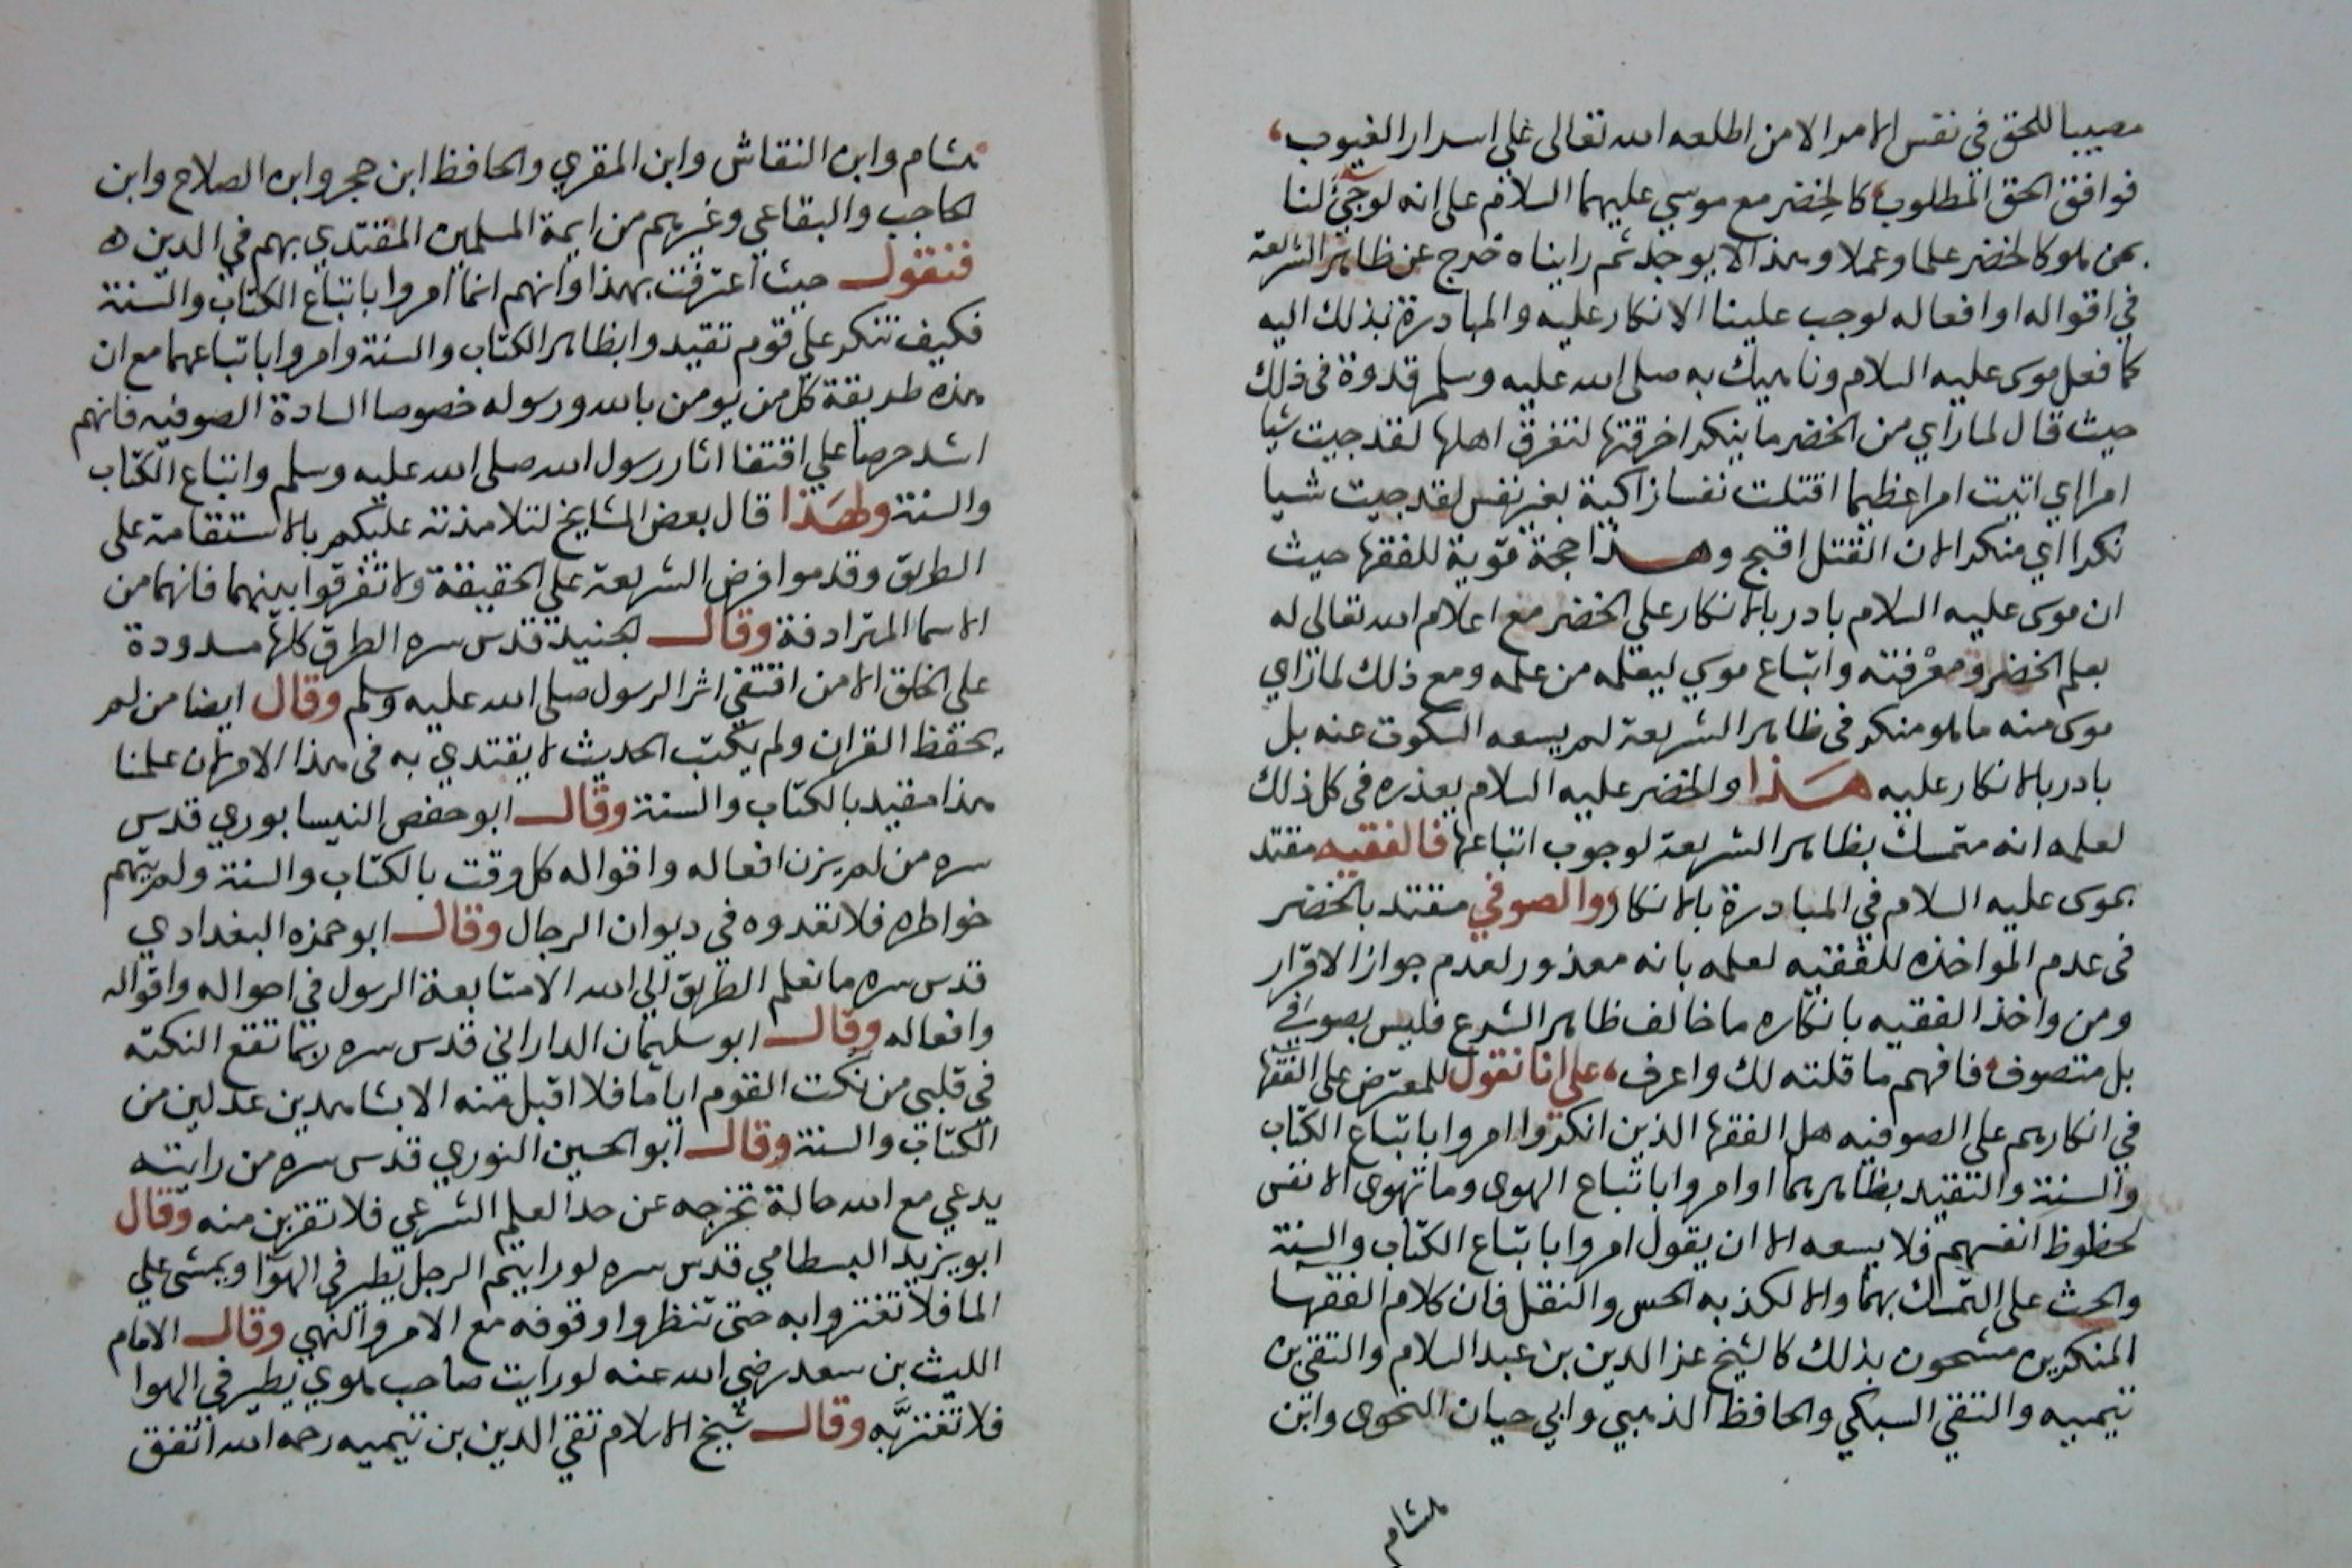 مصيبا للحق في نفس الامر الا من اطلعه الله تعالى على اسرار الغيوب،
فوافق الحق المطلوب، كالخضر مع موسي عليهما السلام على انه لو جيء لنا
بمن هو كالخضر علما وعملا وهذا لا يوجد ثم رايناه خرج عن ظاهر الشريعة
في اقواله او افعاله لوجب علينا الانكار عليه والمبادرة بذلك اليه
كما فعل موسى عليه السلام وناهيك به صلى الله عليه وسلم قدوة في ذلك
حيث قال لما راي من الخضر ما ينكر اخرقتها لتغرق اهلها لقد جيت شيا
امرا اي اتيت امرا عظيما اقتلت نفسا زاكية بغير نفس لقد جيت شيا
نكرا اي منكرا لان القتل اقبح وهذا حجة قوية للفقها حيث
ان موسى عليه السلام بادر بالانكار علي الخضر مع اعلام الله تعالى له
بعلم الخضر ومعرفته واتباع موسي ليعلمه من علمه ومع ذلك لما راي
موسى منه ما هو منكر في ظاهر الشريعة لم يسعه السكوت عنه بل
بادر بالانكار عليه هذا والخضر عليه السلام يعذره في كل ذلك
لعلمه انه متمسك بظاهر الشريعة لوجوب اتباعها فالفقيه مقتد
بموسى عليه السلام في المبادرة بالانكار والصوفي مقتد بالخضر
في عدم المواخذه للفقيه لعلمه بانه معذور لعدم جواز الاقرار
ومن واخذ الفقيه بانكاره ما خالف ظاهر الشرع فليس بصوفي
بل متصوف فافهم ما قلته لك واعرف، على انا نقول للمعترض على الفقها
في انكارهم على الصوفيه هل الفقها الذين انكروا امروا باتباع الكتاب
والسنة والتقيد بظاهرهما او امروا باتباع الهوى وما تهوى الانفس
لحظوظ انفسهم فلا يسعه الا ان يقول امروا باتباع الكتاب والسنة
والحث على التمسك بهما والا لكذبه الحس والنقل فان كلام الفقها
المنكرين مشحون بذلك كالشيخ عز الدين بن عبد السلام والتقي بن
تيميه والتقي السبكي والحافظ الذهبي وابي حيان النحوى وابن
هشام
هشام وابن النقاش وابن المقري والحافظ ابن حجر وابن الصلاح وابن
الحاجب والبقاعي وغيرهم من ايمة المسلمين المقتدي بهم في الدين ه
فنقول حيث اعترفت بهذا وانهم انما امروا باتباع الكتاب والسنة
فكيف تنكر علي قوم تقيدوا بظاهر الكتاب والسنة وامروا باتباعهما مع ان
هذه طريقة كل من يومن بالله ورسوله خصوصا السادة الصوفيه فانهم
اشد حرصا علي اقتفا اثار رسول الله صلى الله عليه وسلم واتباع الكتاب
والسنة ولهذا قال بعض المشايخ لتلامذته عليكم بالاستقامة على
الطريق وقدموا فرض الشريعة علي الحقيقة ولا تفرقوا بينهما فانهما من
الاسما المترادفة وقال الجنيد قدس سره الطرق كلها مسدودة
على الخلق الا من اقتفي اثر الرسول صلى الله عليه وسلم وقال ايضا من لم
يحفظ القران ولم يكتب الحديث لا يقتدي به في هذا الامر لان علمنا
هذا مقيد بالكتاب والسنة وقال ابو حفص النيسابوري قدس
سره من لم يزن افعاله واقواله كل وقت بالكتاب والسنة ولم يتهم
خواطره فلا تعدوه في ديوان الرجال وقال ابو حمزه البغدادي
قدس سره ما نعلم الطريق الي الله الا متابعة الرسول في احواله واقواله
وافعاله وقال ابو سليمان الداراني قدس سره ربما تقع النكته
في قلبي من نكت القوم اياما فلا اقبل منه الا بشاهدين عدلين من
الكتاب والسنة وقال ابو الحسين النوري قدس سره من رايته
يدعي مع الله حالة تخرجه عن حد العلم الشرعي فلا تقربن منه وقال
ابو يزيد البسطامي قدس سره لو رايتم الرجل يطير في الهوا ويمشي علي
الما فلا تغتروا به حتى تنظروا وقوفه مع الامر والنهي وقال الامام
الليث بن سعد رضي الله عنه لو رايت صاحب هوي يطير في الهوا
فلا تغتر به وقال شيخ الاسلام تقي الدين بن تيميه رحمه الله اتفق